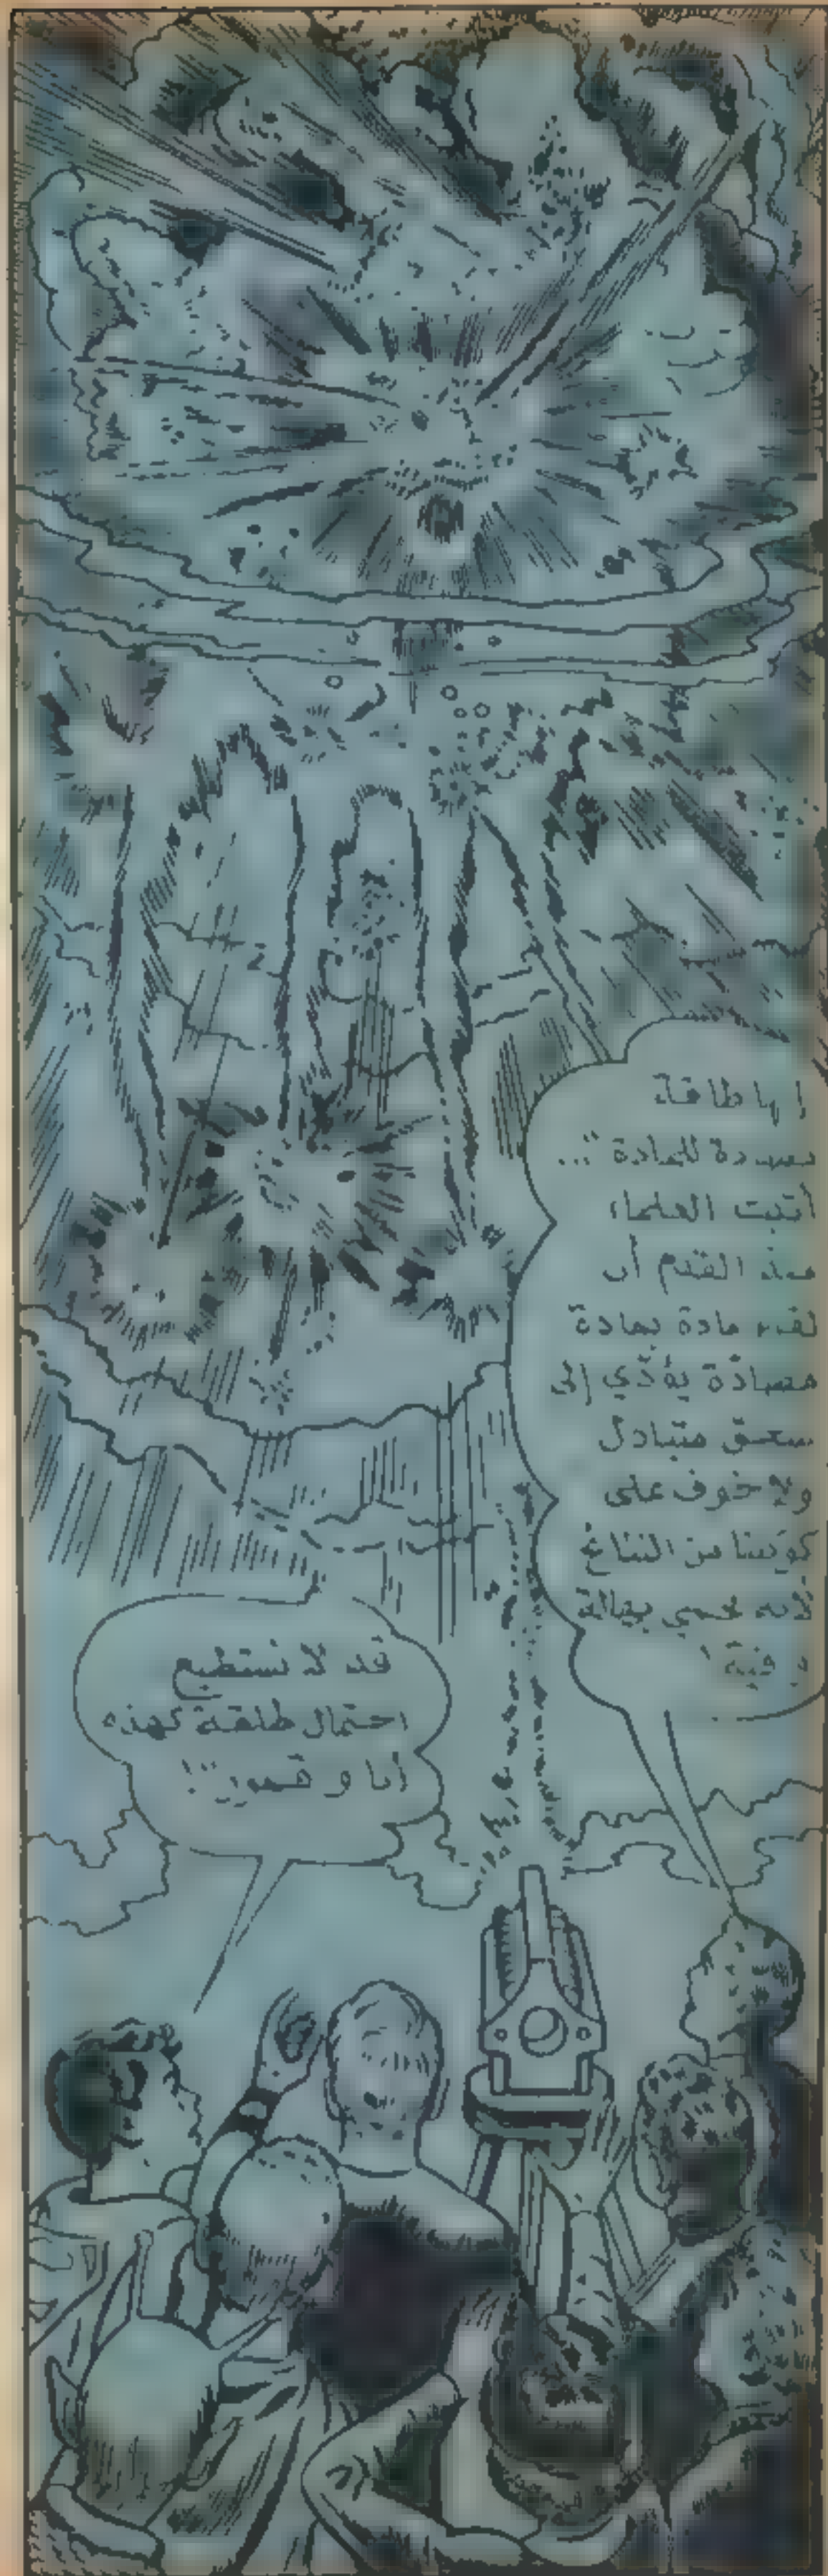 إنها طاقة
مضادة للمادة "...
أثبت العلماء
منذ القدم أن
لقاء مادة بمادة
مضادّة يؤدّي إلى
سحق متبادل
ولا خوف على
كوننا من
لأنه محمي بهالة
قد لا نستطيع
احتمال طلقة كهذه
أنا و